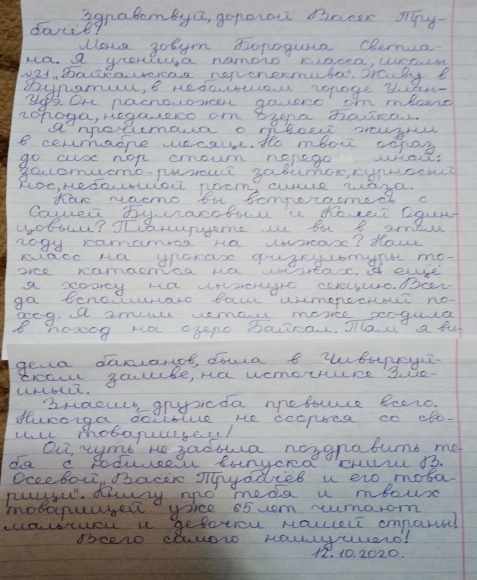 Здравствуй, дорогой Васёк Тру-
бачёв!
Меня зовут Бородина Светла-
на. Я ученица пятого класса, школы
№21 „Байкальская перспектива". Живу в
Бурятии, в небольшом городе Улан-
Удэ. Он расположен далеко от твоего
города, недалеко от озера Байкал.
Я прочитала о твоей жизни
в сентябре месяце. Но твой образ
до сих пор стоит передо мной:
золотисто-рыжий завиток, курносый
нос, небольшой рост, синие глаза.
Как часто вы встречаетесь с
Сашей Булгаковым и Колей Один-
цовым? Планируете ли вы в этом
году кататься на лыжах? Наш
класс на уроках физкультуры то-
же катается на лыжах. А ещё
я хожу на лыжную секцию. Всег-
да вспоминаю ваш интересный по-
ход. Я этим летом тоже ходила
в поход на озеро Байкал. Там я ви-
дела бакланов, была в Чивыркуй-
ском заливе, на источнике Зме-
иный.
Знаешь, дружба превыше всего.
Никогда больше не ссорься со сво-
им товарищем!
Ой, чуть не забыла поздравить те-
бя с юбилеем выпуска книги В.
Осеевой „Васёк Трубачёв и его това-
рищи". Книгу про тебя и твоих
товарищей уже 65 лет читают
мальчики и девочки нашей страны!
Всего самого наилучшего!
12.10.2020.